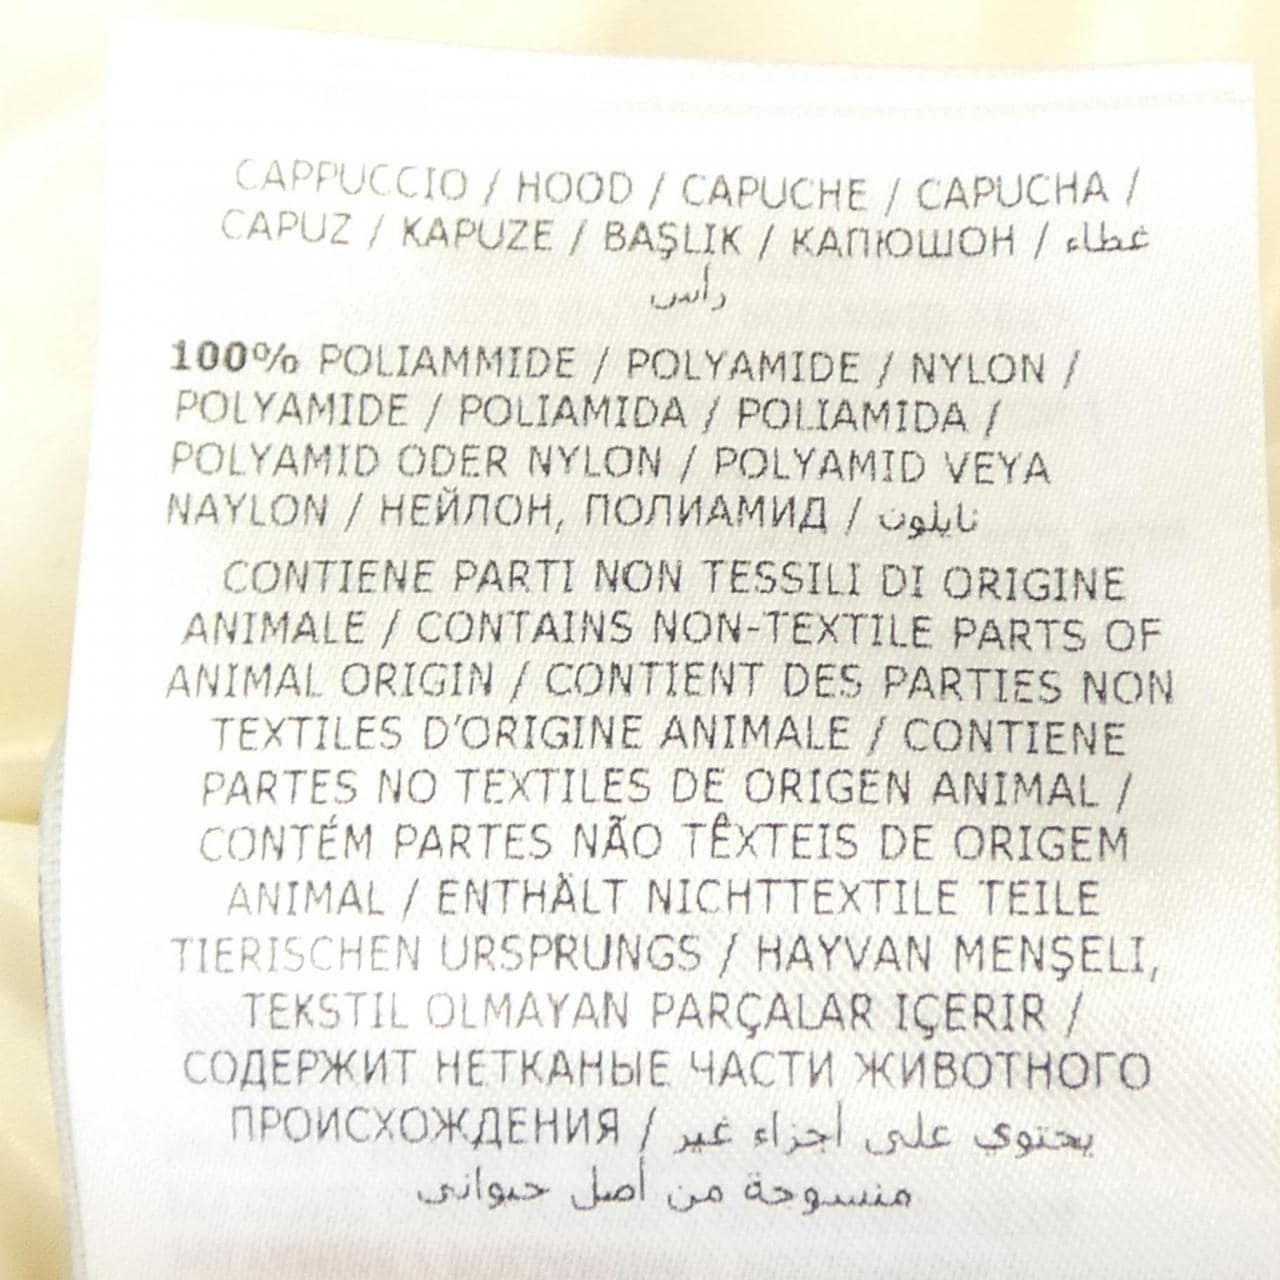 CAPPUCCIO / HOOD / CAPUCHE / CAPUCHA /
CAPUZ / KAPUZE / BAŞLIK / КАПЮШОН / غطاء
رأس
100% POLIAMMIDE / POLYAMIDE / NYLON /
POLYAMIDE / POLIAMIDA / POLIAMIDA /
POLYAMID ODER NYLON / POLYAMID VEYA
NAYLON / НЕЙЛОН, ПОЛИАМИД / نايلون
CONTIENE PARTI NON TESSILI DI ORIGINE
ANIMALE / CONTAINS NON-TEXTILE PARTS OF
ANIMAL ORIGIN / CONTIENT DES PARTIES NON
TEXTILES D’ORIGINE ANIMALE / CONTIENE
PARTES NO TEXTILES DE ORIGEN ANIMAL /
CONTÉM PARTES NÃO TÊXTEIS DE ORIGEM
ANIMAL / ENTHÄLT NICHTTEXTILE TEILE
TIERISCHEN URSPRUNGS / HAYVAN MENŞELI,
TEKSTIL OLMAYAN PARÇALAR IÇERIR /
СОДЕРЖИТ НЕТКАНЫЕ ЧАСТИ ЖИВОТНОГО
ПРОИСХОЖДЕНИЯ / يحتوي على أجزاء غير
منسوجة من أصل حيواني